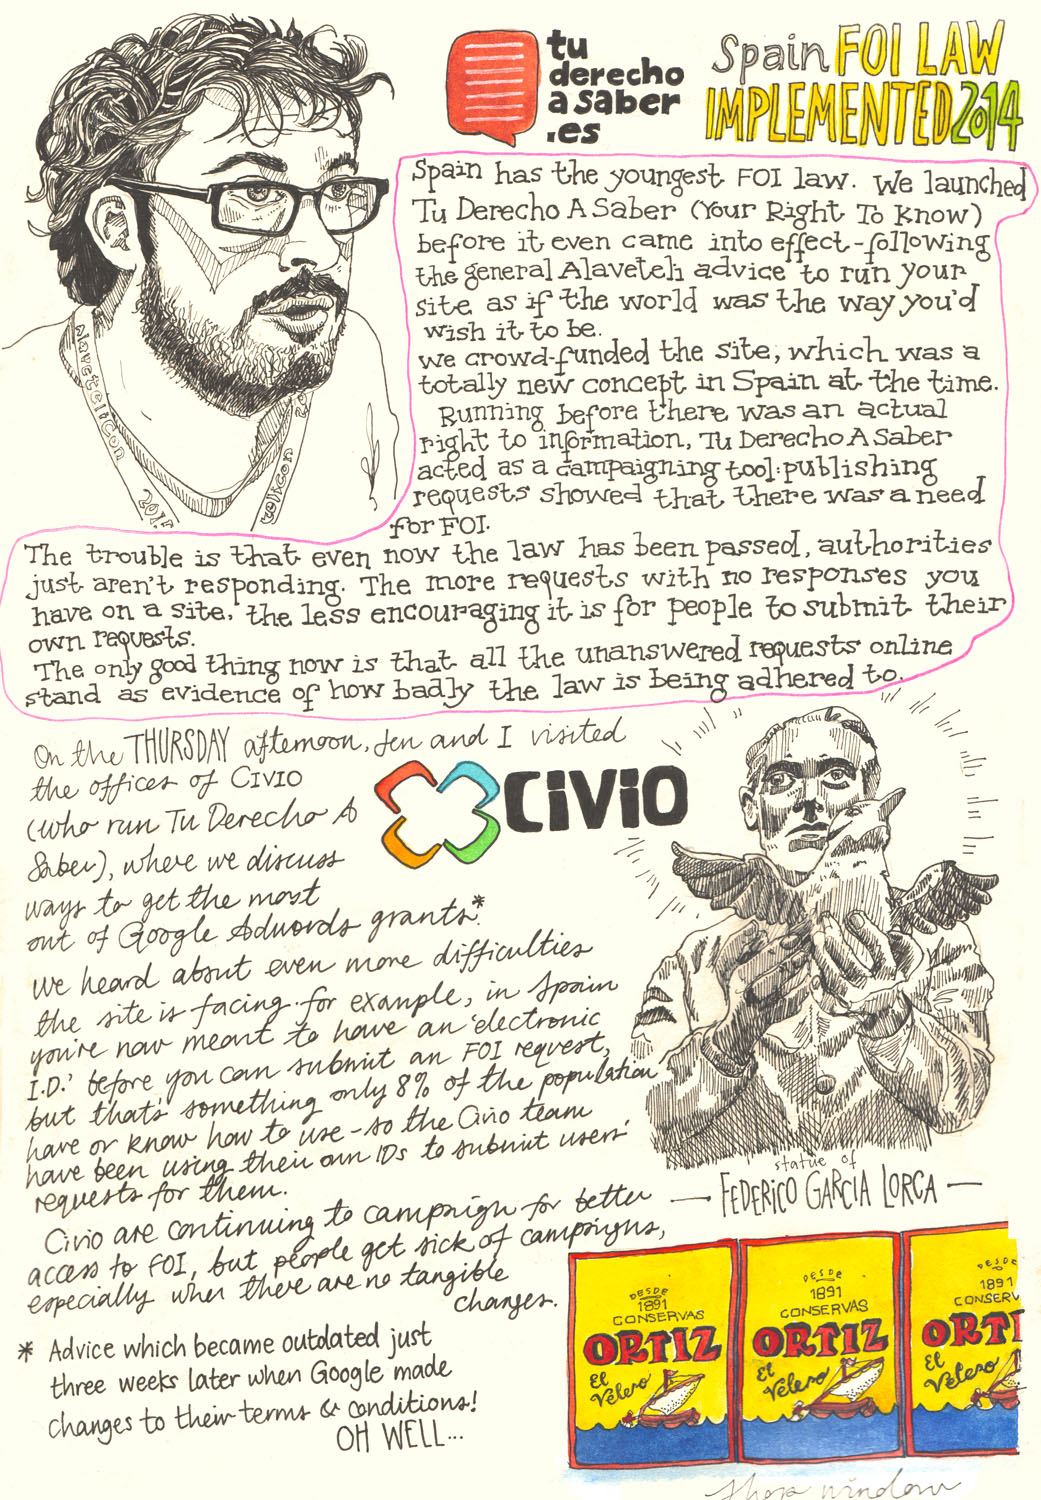 tu
derecho
a saber
.es
Spain FOI LAW
IMPLEMENTED 2014
Spain has the youngest FOI law. We launched
Tu Derecho A Saber (Your Right To Know)
before it even came into effect - following
the general Alaveteli advice to run your
site as if the world was the way you'd
wish it to be.
We crowd-funded the site, which was a
totally new concept in Spain at the time.
Running before there was an actual
right to information, Tu Derecho A Saber
acted as a campaigning tool: publishing
requests showed that there was a need
for FOI.
The trouble is that even now the law has been passed, authorities
just aren't responding. The more requests with no responses you
have on a site, the less encouraging it is for people to submit their
own requests.
The only good thing now is that all the unanswered requests online
stand as evidence of how badly the law is being adhered to.
Alavetelicon
2015
telicon
On the THURSDAY afternoon, Jen and I visited
the offices of CIVIO
(who run Tu Derecho A
Saber), where we discuss
ways to get the most
out of Google Adwords grants*.
CiViO
We heard about even more difficulties
the site is facing. for example, in Spain
you're now meant to have an 'electronic
I.D.' before you can submit an FOI request,
but that's something only 8% of the population
have or know how to use - so the Civio team
have been using their own IDs to submit users'
requests for them.
Civio are continuing to campaign for better
access to FOI, but people get sick of campaigns,
especially when there are no tangible
changes.
statue of
FEDERICO GARCIA LORCA
* Advice which became outdated just
three weeks later when Google made
changes to their terms & conditions!
OH WELL...
DESDE
1891
CONSERVAS
ORTIZ
El
Velero
DESDE
1891
CONSERVAS
ORTIZ
El
Velero
DESDE
1891
CONSERV
ORTI
El
Velero
shop window